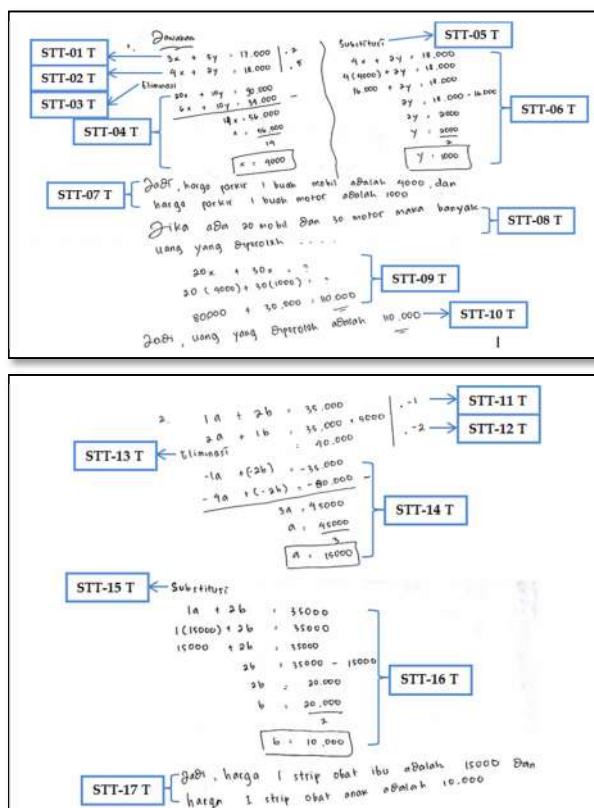 Jawaban
1.
STT-01 T 3x + 5y = 17.000 | .2
STT-02 T 4x + 2y = 18.000 | .5
STT-03 T Eliminasi
20x + 10y = 90.000
6x + 10y = 34.000 -
STT-04 T
14x = 56.000
x = 56.000
14
x = 4000
Substitusi STT-05 T
4x + 2y = 18.000
4(4000) + 2y = 18.000
16.000 + 2y = 18.000
2y = 18.000 - 16.000
STT-06 T
2y = 2000
y = 2000
2
y = 1000
STT-07 T
Jadi, harga parkir 1 buah mobil adalah 4000, dan
harga parkir 1 buah motor adalah 1000
Jika ada 20 mobil dan 30 motor maka banyak
STT-08 T
uang yang diperoleh ....
20x + 30x = ?
20 (4000) + 30 (1000) = ?
STT-09 T
80000 + 30.000 = 110.000
Jadi, uang yang diperoleh adalah 110.000 STT-10 T
2. 1a + 2b = 35.000 | .-1 STT-11 T
2a + 1b = 35.000 + 5000 | .-2 STT-12 T
= 40.000
STT-13 T Eliminasi
-1a + (-2b) = -35.000
-4a + (-2b) = -80.000 -
STT-14 T
3a = 45000
a = 45000
3
a = 15000
STT-15 T Substitusi
1a + 2b = 35000
1(15000) + 2b = 35000
15000 + 2b = 35000
2b = 35000 - 15000
STT-16 T
2b = 20.000
b = 20.000
2
b = 10.000
STT-17 T
Jadi, harga 1 strip obat ibu adalah 15000 dan
harga 1 strip obat anak adalah 10.000